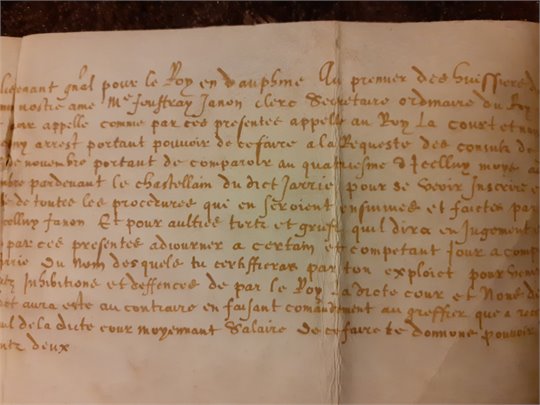 lieutenant gnal pour le Roy en dauphine Au premier des huissiers de
nostre ame Me Jouffray Janon clerc Secretaire ordinaire du Roy
appelle comme par ces presentes appelle au Roy La Court et nous
arrest portant pouvoir de ce faire a la Requeste des consulz de
de novembre portant de comparoir au quatriesme d'Icelluy moys au
pardevant le chastellain du dict Jarrie pour se veoir Inscrire e
de toutes les procedures que en seroient ensuivies et faictes par
Icelluy Janon Et pour aultres tortz et griefz quil dira en Jugement e
par ces presentes adjourner a certain et competant Jour a comp
Du nom desquels tu certiffieras par ton exploict pour venir
Inhibitions et deffences de par le Roy la dicte cour et Nous de
aura este au contraire en faisant comandement au greffier que a rece
de la dicte cour moyennant Salaire De ce faire te donnons pouvoir
deux